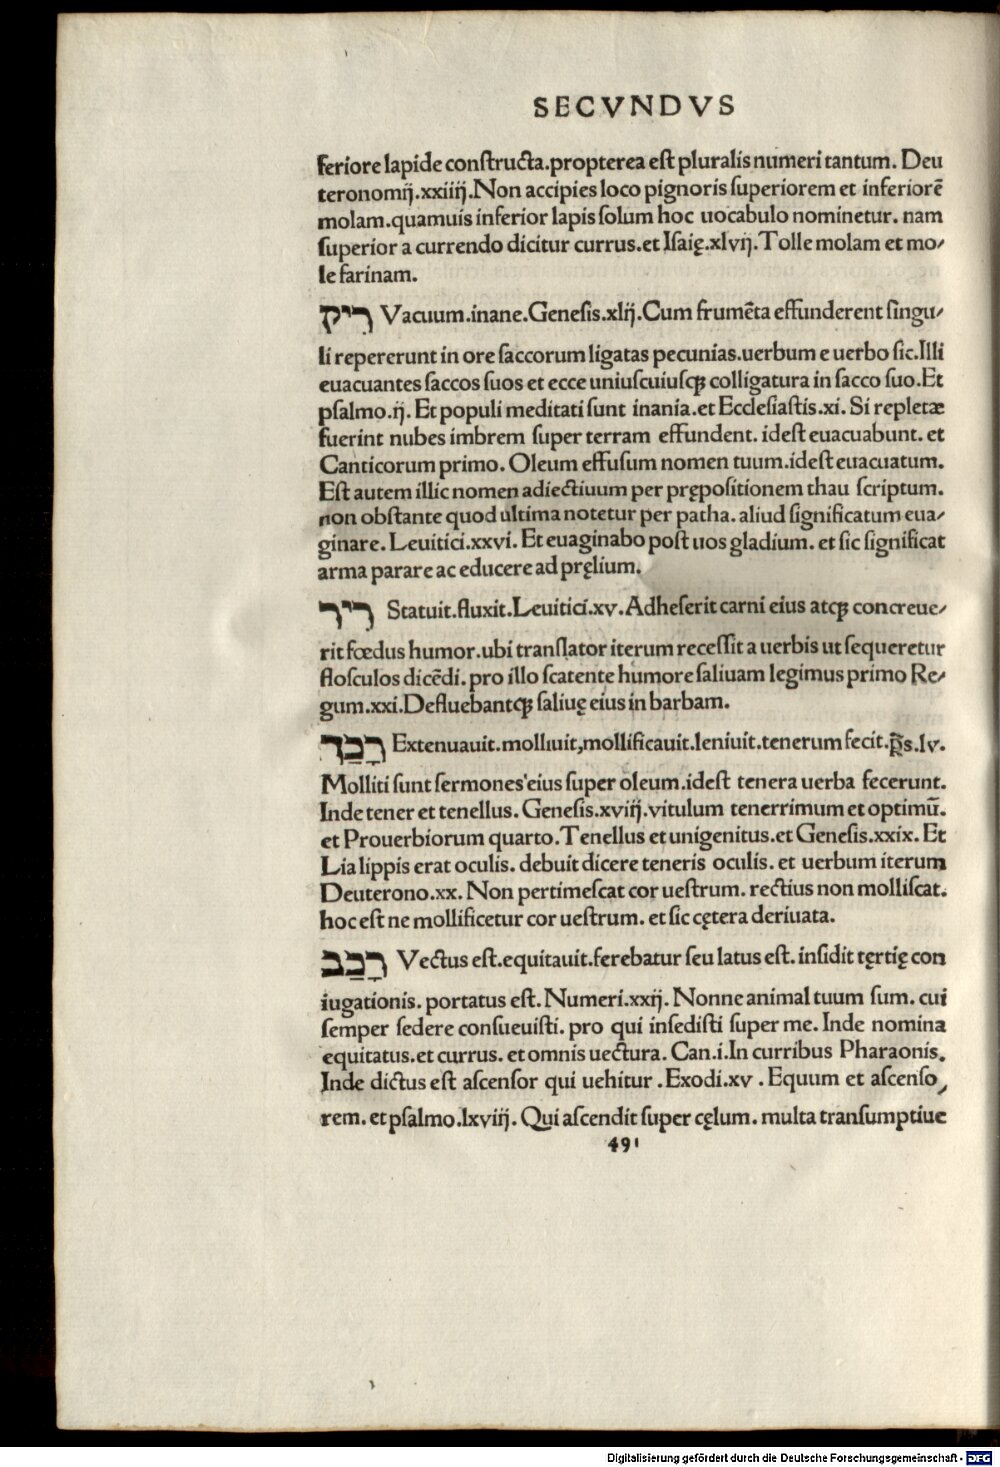 SECVNDVS
feriore lapide conſtructa.propterea eſt pluralis numeri tantum. Deu
teronomij.xxiiij.Non accipies loco pignoris ſuperiorem et inferiorē
molam.quamuis inferior lapis ſolum hoc uocabulo nominetur. nam
ſuperior a currendo dicitur currus.et Iſaię.xlvij.Tolle molam et mo/
le farinam.
רִיק Vacuum.inane.Geneſis.xlij.Cum frumēta effunderent ſingu/
li repererunt in ore ſaccorum ligatas pecunias.uerbum e uerbo ſic.Illi
euacuantes ſaccos ſuos et ecce uniuſcuiuſcꝫ colligatura in ſacco ſuo.Et
pſalmo.ij. Et populi meditati ſunt inania.et Eccleſiaſtis.xi. Si repletæ
fuerint nubes imbrem ſuper terram effundent. ideſt euacuabunt. et
Canticorum primo. Oleum effuſum nomen tuum.ideſt euacuatum.
Eſt autem illic nomen adiectiuum per prępoſitionem thau ſcriptum.
non obſtante quod ultima notetur per patha. aliud ſignificatum eua/
ginare. Leuitici.xxvi. Et euaginabo poſt uos gladium. et ſic ſignificat
arma parare ac educere ad pręlium.
רִיר Statuit.fluxit.Leuitici.xv.Adheſerit carni eius atcꝫ concreue/
rit fœdus humor.ubi tranſlator iterum receſſit a uerbis ut ſequeretur
floſculos dicēdi. pro illo ſcatente humore ſaliuam legimus primo Re/
gum.xxi.Defluebantcꝫ ſaliuę eius in barbam.
רָכַך Extenuauit.molliuit,mollificauit.leniuit.tenerum fecit.p̄s.lv.
Molliti ſunt ſermones eius ſuper oleum.ideſt tenera uerba fecerunt.
Inde tener et tenellus. Geneſis.xviij.vitulum tenerrimum et optimū.
et Prouerbiorum quarto.Tenellus et unigenitus.et Geneſis.xxix. Et
Lia lippis erat oculis. debuit dicere teneris oculis. et uerbum iterum
Deuterono.xx. Non pertimeſcat cor ueſtrum. rectius non molliſcat.
hoc eſt ne mollificetur cor ueſtrum. et ſic cętera deriuata.
רָכַב Vectus eſt.equitauit.ferebatur ſeu latus eſt. inſidit tęrtię con
iugationis. portatus eſt. Numeri.xxij. Nonne animal tuum ſum. cui
ſemper ſedere conſueuiſti. pro qui inſediſti ſuper me. Inde nomina
equitatus.et currus. et omnis uectura. Can.i.In curribus Pharaonis.
Inde dictus eſt aſcenſor qui uehitur .Exodi.xv . Equum et aſcenſo/
rem. et pſalmo.lxviij. Qui aſcendit ſuper cęlum. multa tranſumptiue
491
Digitalisierung gefördert durch die Deutsche Forschungsgemeinschaft - DFG